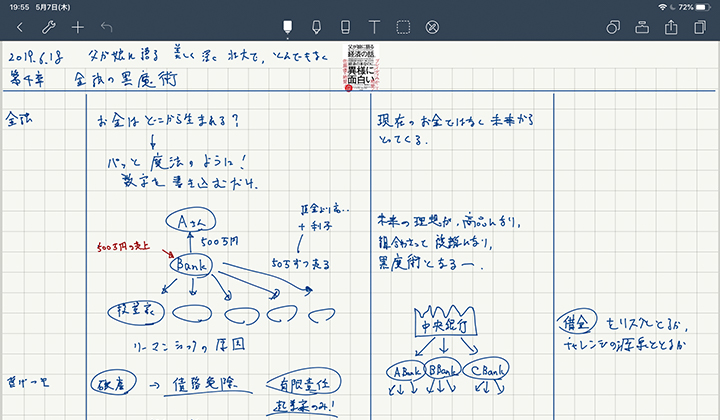 19:55 5月7日(木)
72%
2019.6.18 父が娘に語る 美しく 深く 壮大で、とんでもなく
父が娘に語る
経済の話。
異様に
面白い
第4章 金融の黒魔術
金融
お金は どこから生まれる?
パッと 魔法のように!
数字を 書き込むだけ。
Aさん
500万円
500万円の売上
Bank
+ 利子
50万ずつ売る
投資家
リーマンショックの 原因
現在の お金ではなく 未来から
とってくる。
未来の 理想が、商品になり、
黒魔術となる
中央銀行
A Bank B Bank C Bank
借金 をリスクととるか、
チャレンジの源泉ととるか
破産 → 債務免除
有限責任
起業家のみ!